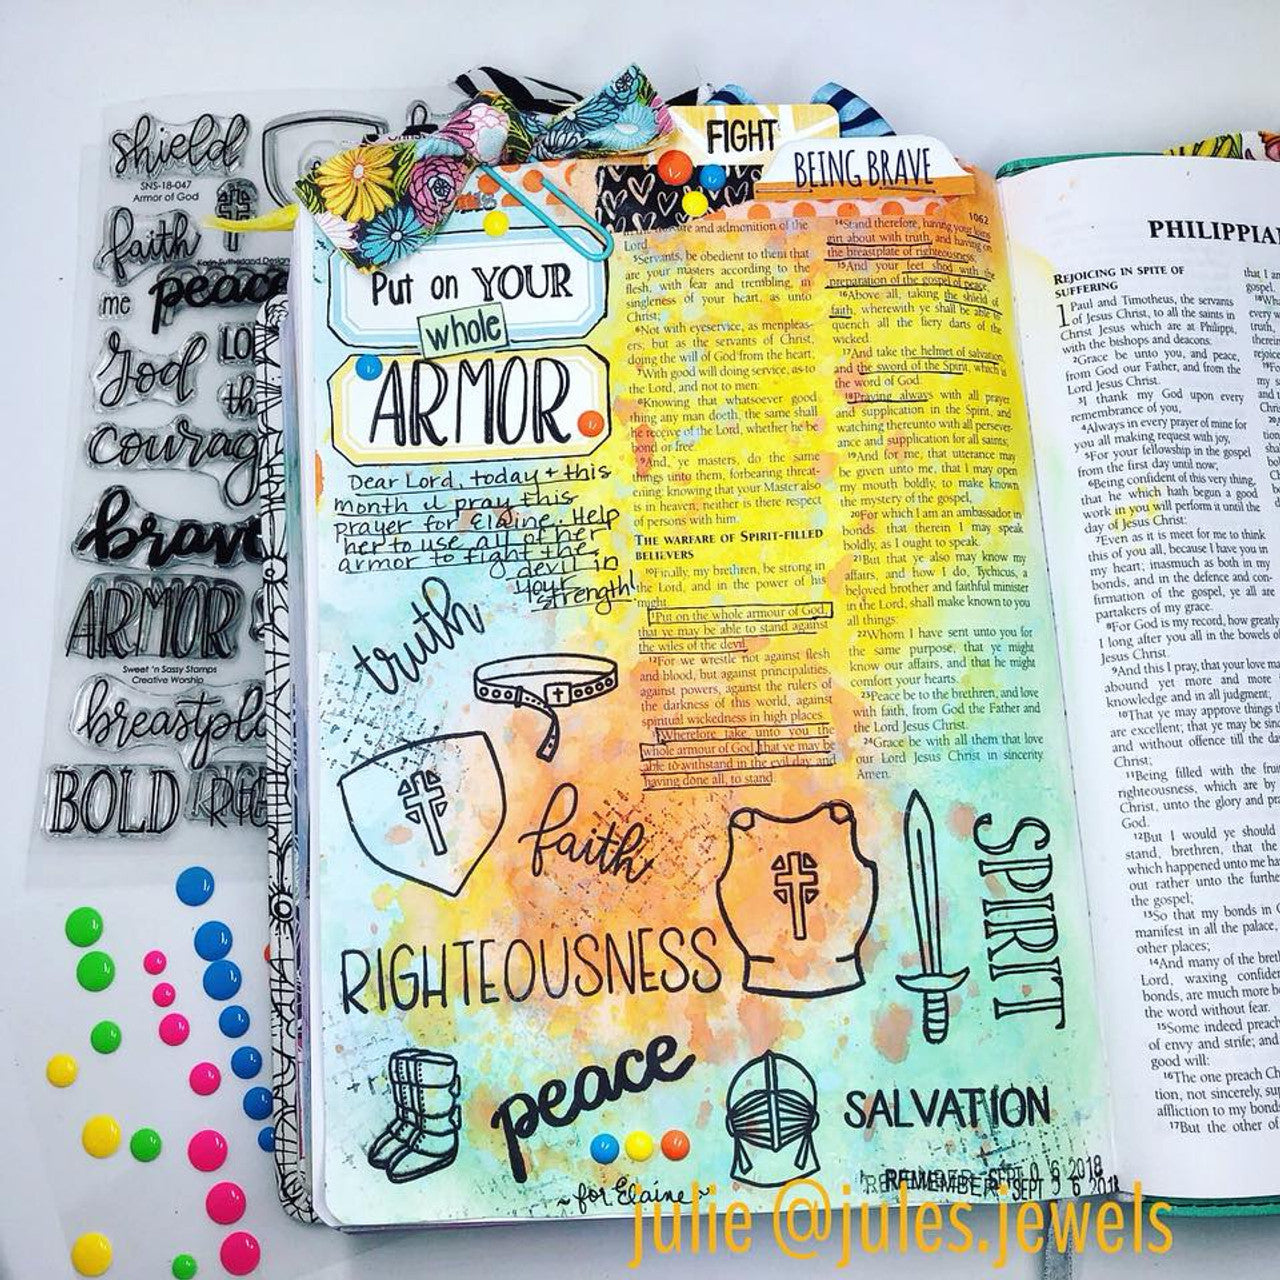 shield
SNS-18-047
Armor of God
faith
me
peace
God
courag
brave
ARMOR
Sweet 'n Sassy Stamps
Creative Worship
breastpla
BOLD
FIGHT
BEING BRAVE
Put on YOUR
whole
ARMOR
Dear Lord, today + this
month I pray this
prayer for Elaine. Help
her to use all of her
armor to fight the
devil in
your
strength!
truth
faith
RIGHTEOUSNESS
peace
SPIRIT
SALVATION
~for Elaine~
REMEMBER SEPT 0 6 2018
and admonition of the
Lord.
5Servants, be obedient to them that
are your masters according to the
flesh, with fear and trembling, in
singleness of your heart, as unto
Christ;
6Not with eyeservice, as menpleas-
ers; but as the servants of Christ,
doing the will of God from the heart,
7With good will doing service, as to
the Lord, and not to men:
8Knowing that whatsoever good
thing any man doeth, the same shall
he receive of the Lord, whether he be
bond or free.
9And, ye masters, do the same
things unto them, forbearing threat-
ening: knowing that your Master also
is in heaven; neither is there respect
of persons with him.
THE WARFARE OF SPIRIT-FILLED
BELIEVERS
10Finally, my brethren, be strong in
the Lord, and in the power of his
might.
11Put on the whole armour of God,
that ye may be able to stand against
the wiles of the devil.
12For we wrestle not against flesh
and blood, but against principalities,
against powers, against the rulers of
the darkness of this world, against
spiritual wickedness in high places.
13Wherefore take unto you the
whole armour of God, that ye may be
able to withstand in the evil day, and
having done all, to stand.
1062
14Stand therefore, having your loins
girt about with truth, and having on
the breastplate of righteousness;
15And your feet shod with the
preparation of the gospel of peace;
16Above all, taking the shield of
faith, wherewith ye shall be able to
quench all the fiery darts of the
wicked.
17And take the helmet of salvation,
and the sword of the Spirit, which is
the word of God:
18Praying always with all prayer
and supplication in the Spirit, and
watching thereunto with all persever-
ance and supplication for all saints;
19And for me, that utterance may
be given unto me, that I may open
my mouth boldly, to make known
the mystery of the gospel,
20For which I am an ambassador in
bonds: that therein I may speak
boldly, as I ought to speak.
21But that ye also may know my
affairs, and how I do, Tychicus, a
beloved brother and faithful minister
in the Lord, shall make known to you
all things:
22Whom I have sent unto you for
the same purpose, that ye might
know our affairs, and that he might
comfort your hearts.
23Peace be to the brethren, and love
with faith, from God the Father and
the Lord Jesus Christ.
24Grace be with all them that love
our Lord Jesus Christ in sincerity.
Amen.
PHILIPPIA
REJOICING IN SPITE OF
SUFFERING
1 Paul and Timotheus, the servants
of Jesus Christ, to all the saints in
Christ Jesus which are at Philippi,
with the bishops and deacons:
2Grace be unto you, and peace,
from God our Father, and from the
Lord Jesus Christ.
3I thank my God upon every
remembrance of you,
4Always in every prayer of mine for
you all making request with joy,
5For your fellowship in the gospel
from the first day until now;
6Being confident of this very thing,
that he which hath begun a good
work in you will perform it until the
day of Jesus Christ:
7Even as it is meet for me to think
this of you all, because I have you in
my heart; inasmuch as both in my
bonds, and in the defence and con-
firmation of the gospel, ye all are
partakers of my grace.
8For God is my record, how greatly
I long after you all in the bowels of
Jesus Christ.
9And this I pray, that your love ma
abound yet more and more
knowledge and in all judgment;
10That ye may approve things t
are excellent; that ye may be sinc
and without offence till the da
Christ;
11Being filled with the frui
righteousness, which are by
Christ, unto the glory and pra
God.
12But I would ye should
stand, brethren, that the
which happened unto me ha
out rather unto the furthe
the gospel;
13So that my bonds in
manifest in all the palace,
other places;
14And many of the bret
Lord, waxing confiden
bonds, are much more b
the word without fear.
15Some indeed preach
of envy and strife; and
good will:
16The one preach Ch
tion, not sincerely, su
affliction to my bond
17But the other of
julie @jules.jewels